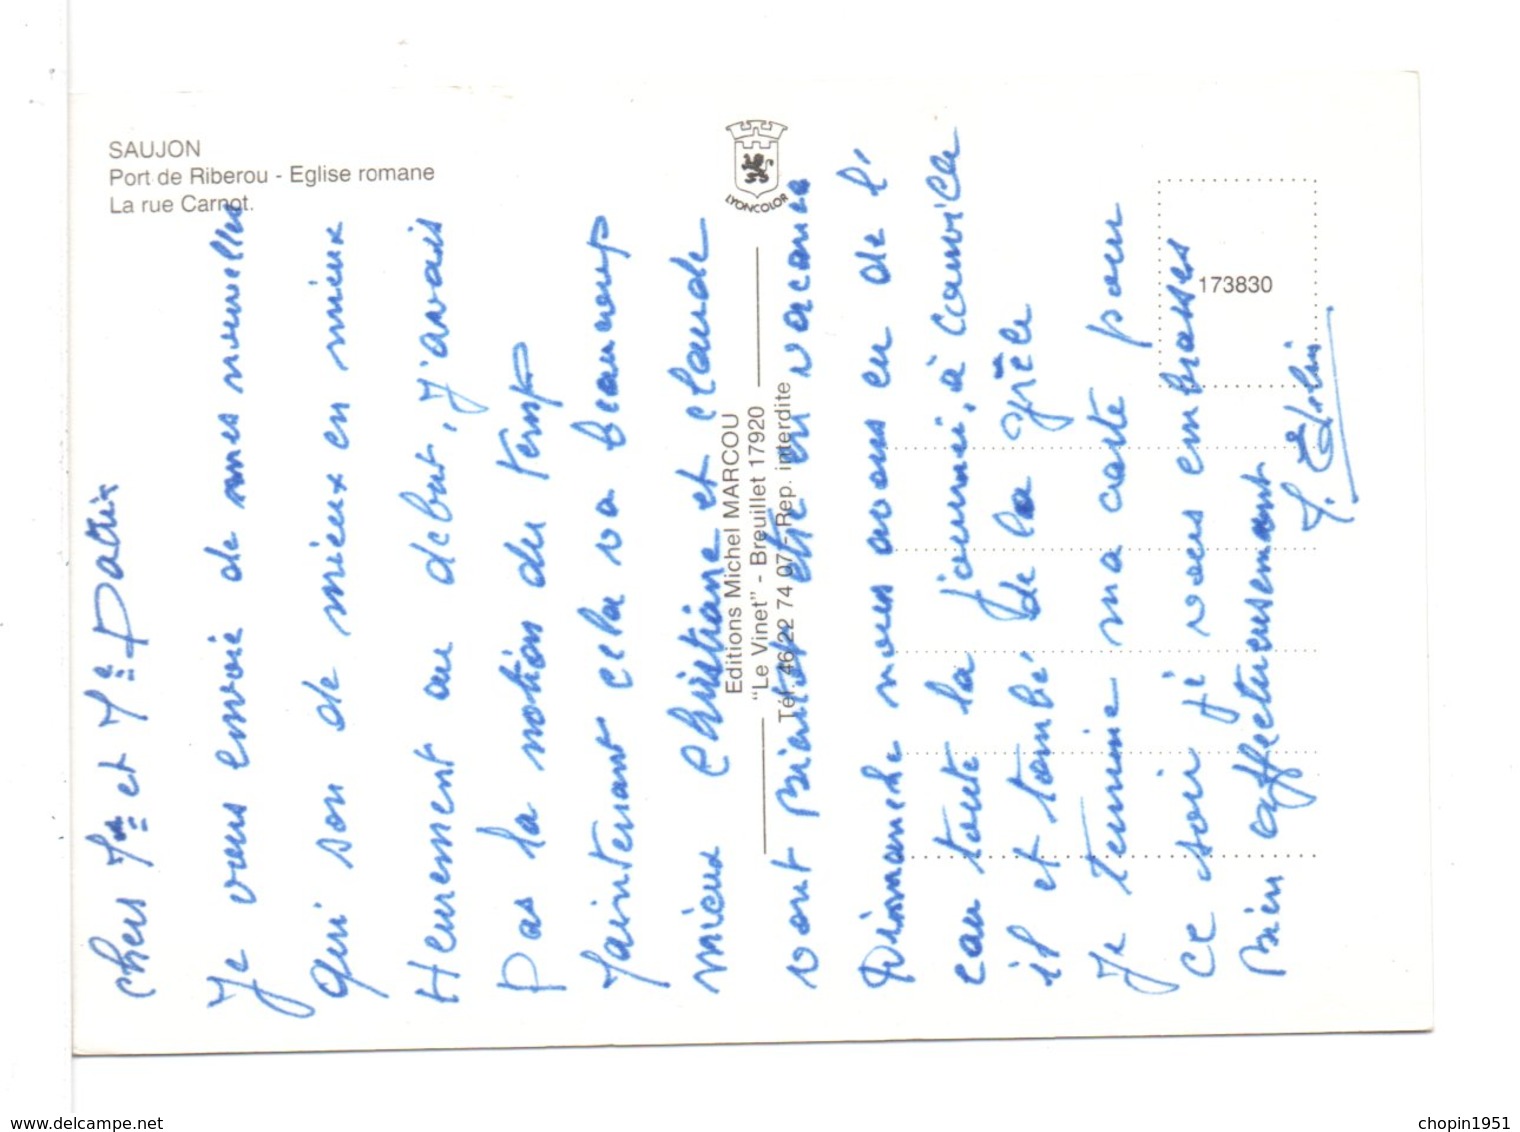 SAUJON
Port de Riberou - Eglise romane
La rue Carnot.
LYONCOLOR
Editions Michel MARCOU
"Le Vinet" - Breuillet 17920
Tél. 46 22 74 07 - Rep. interdite
173830
chers Mr et Me Patrix
Je vous envoie de mes nouvelles
qui son de mieux en mieux
Heurement au debut, J'avais
Pas la notion du temps
Maintenant cela va beaucoup
mieux Christiane et claude
vont Bientot etre en vacances
Dimanche nous avons eu de l'
eau toute la journeé, à
il et tombé de la grèle
Je termine ma carte pour
ce soir je vous embrasses
Bien affectueusement
www.delcampe.net
chopin1951